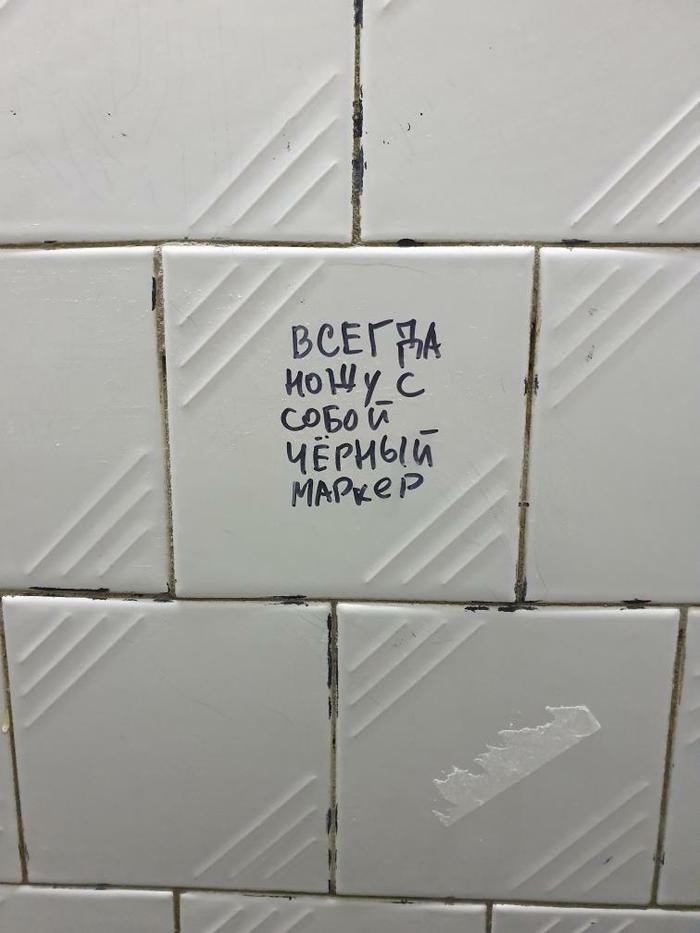 ВСЕГДА
НОЖУ С
СОБОЙ
ЧЁРНЫЙ
МАРКЕР